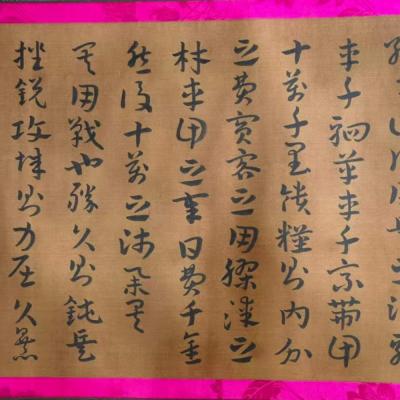 之法
車千駟革車千乘帶甲
十萬千里饋糧則內外
之費賓客之用膠漆之
材車甲之奉日費千金
然後十萬之師舉矣
其用戰也勝久則鈍兵
挫銳攻城則力屈久暴